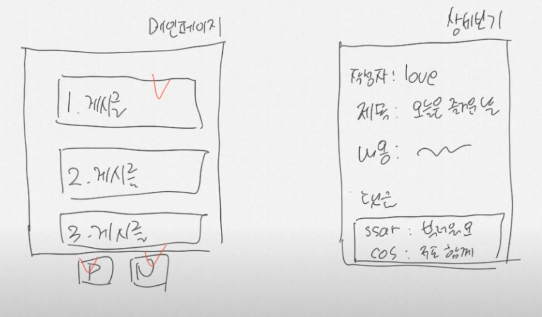 메인페이지
1. 게시글
2. 게시글
3. 게시글
P N
상세보기
작성자 : love
제목 : 오늘은 즐거운 날
내용 :
댓글
ssar : 부러워요
cos : 저도 함께